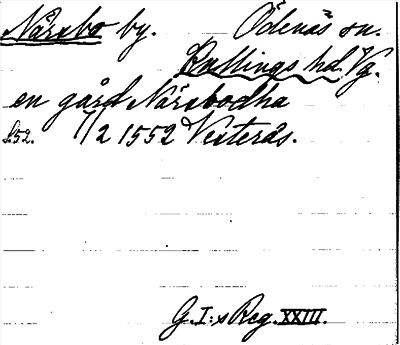 Närabo by. Ödenäs sn.
Kullings hd. Vg.
en gård Närabodha
s. 52. 7/2 1552 Vesterås.
G. I:s Reg. XXIII.